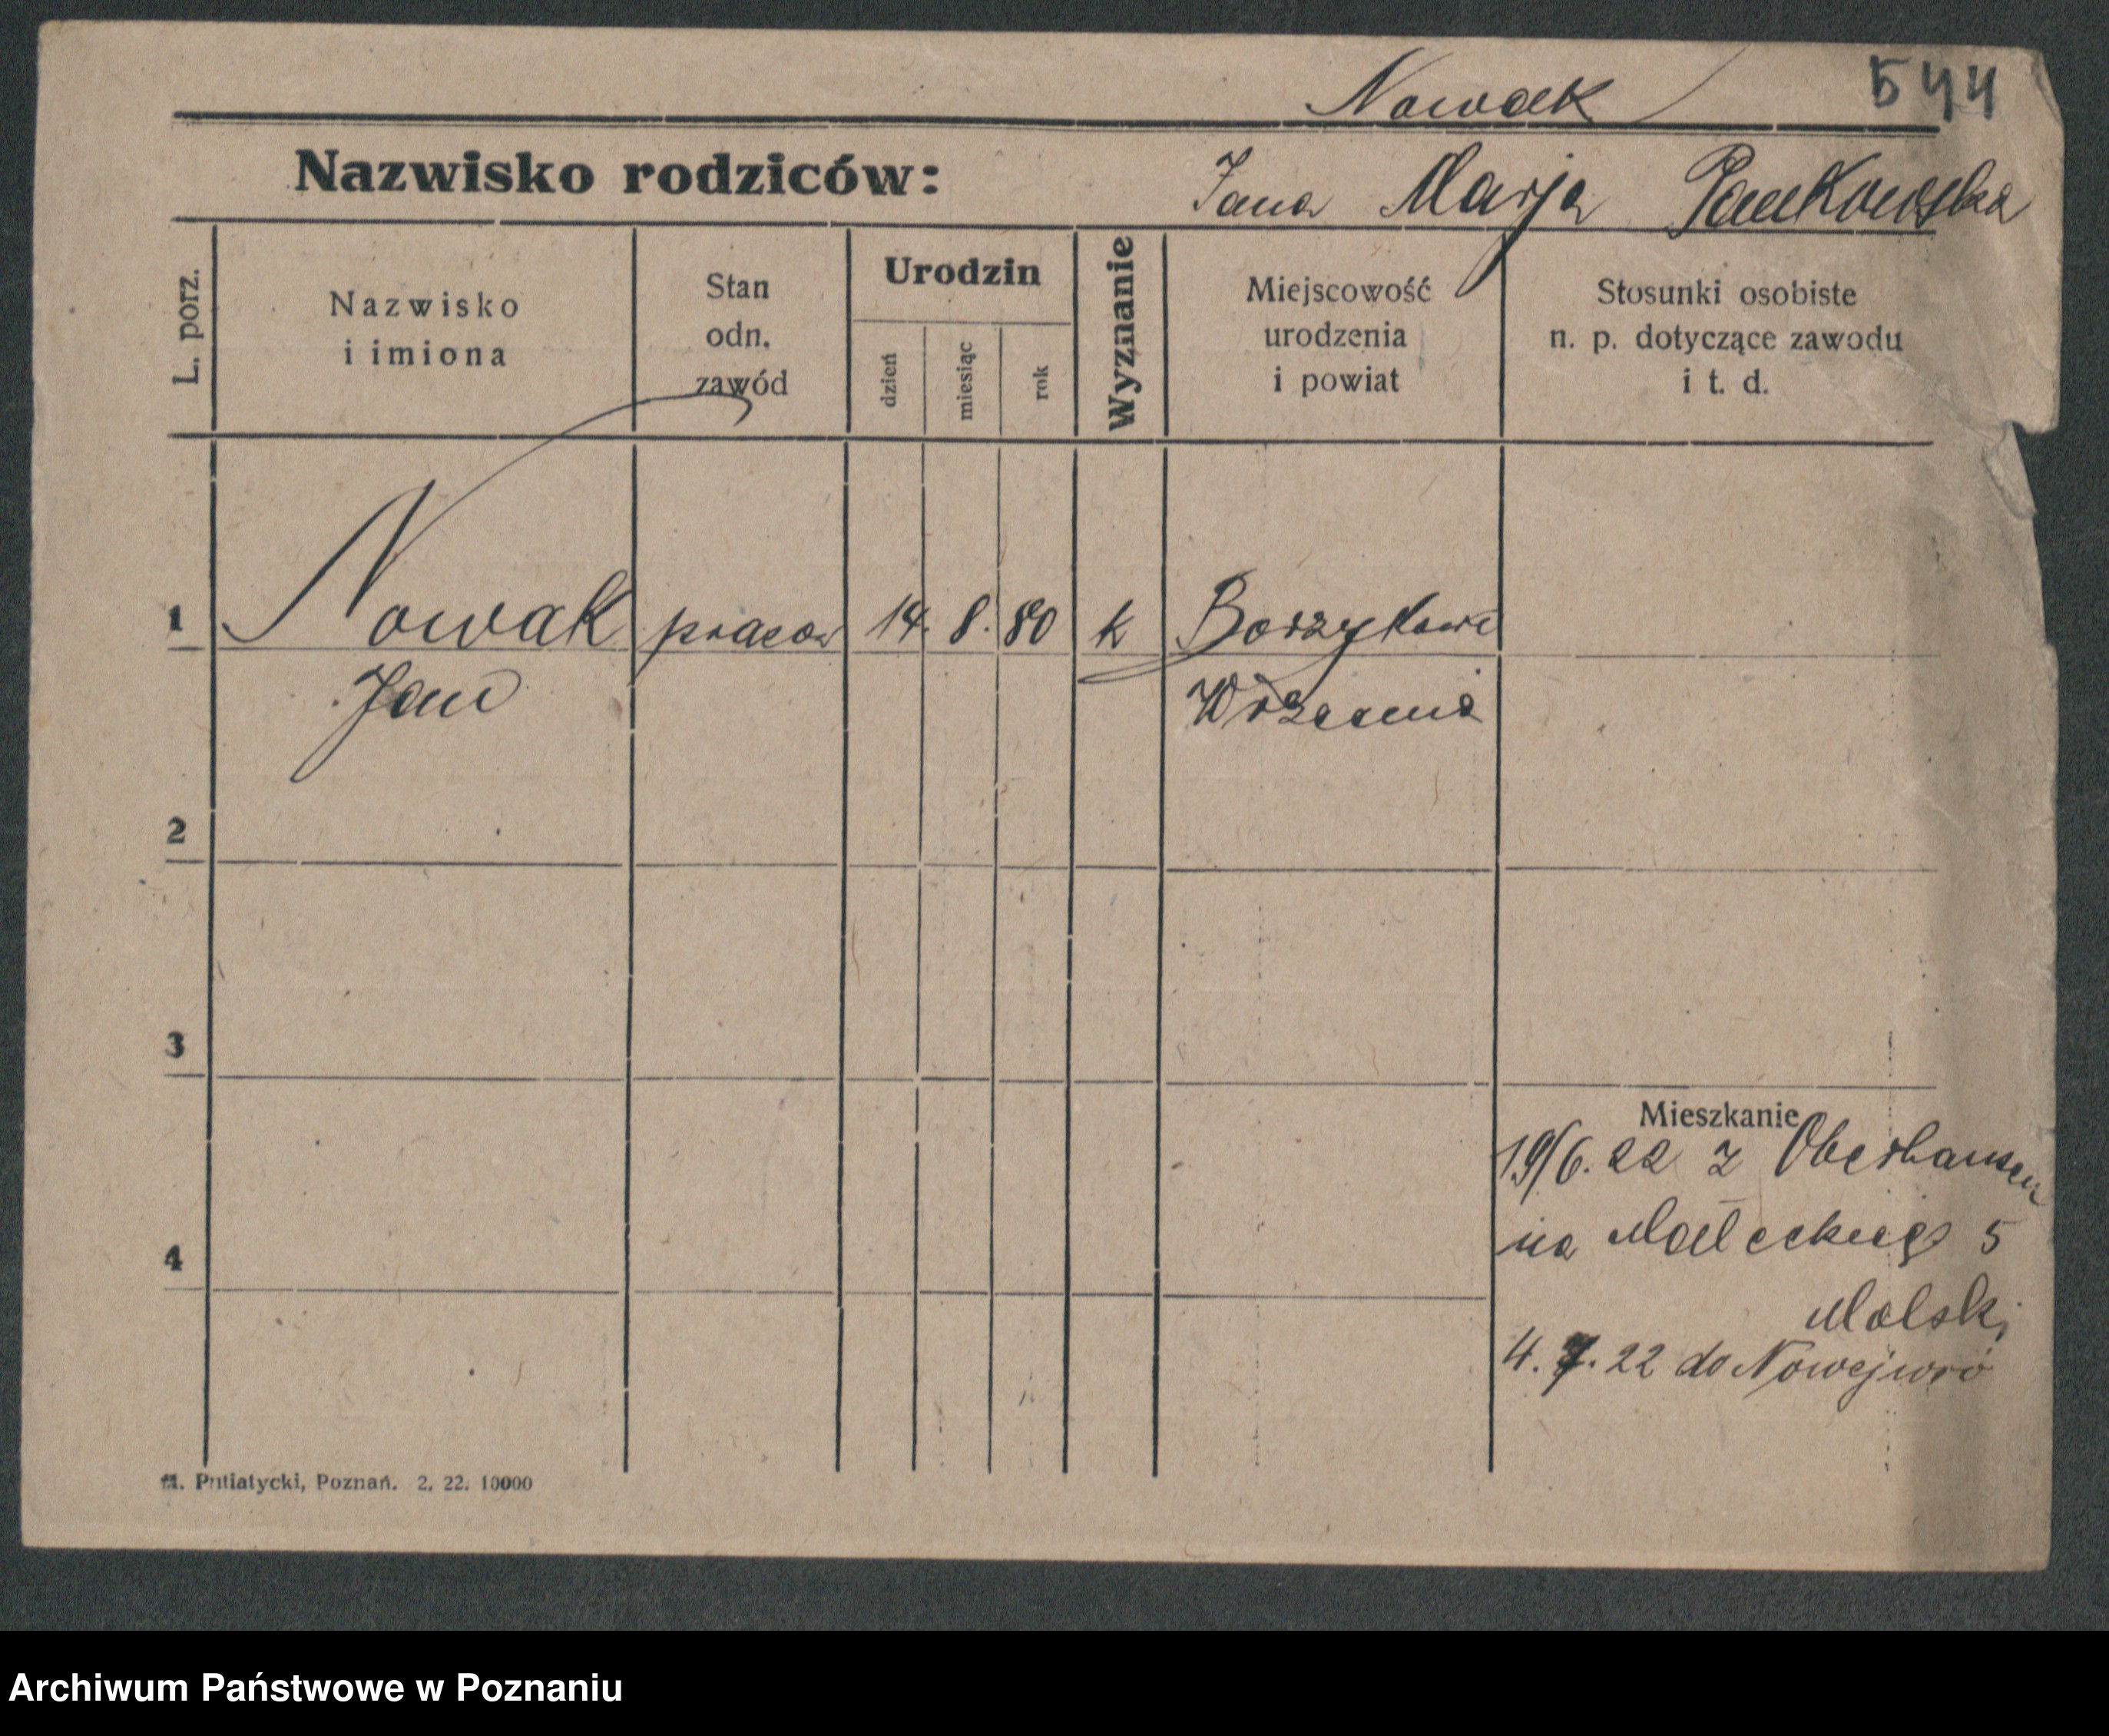 Nowak 544
Nazwisko rodziców: Jana Marja Pankowska
L. porz.
Nazwisko
i imiona
Stan
odn.
zawód
Urodzin
dzień
miesiąc
rok
Wyznanie
Miejscowość
urodzenia
i powiat
Stosunki osobiste
n. p. dotyczące zawodu
i t. d.
1 Nowak 14. 8. 80 k Borzykowo
Jan Września
2
3
Mieszkanie
19/6. 22 z Oberhausen
na Małeckiego 5
4
Molski
4. 7. 22 do
Putiatycki, Poznań. 2. 22. 10000
Archiwum Państwowe w Poznaniu